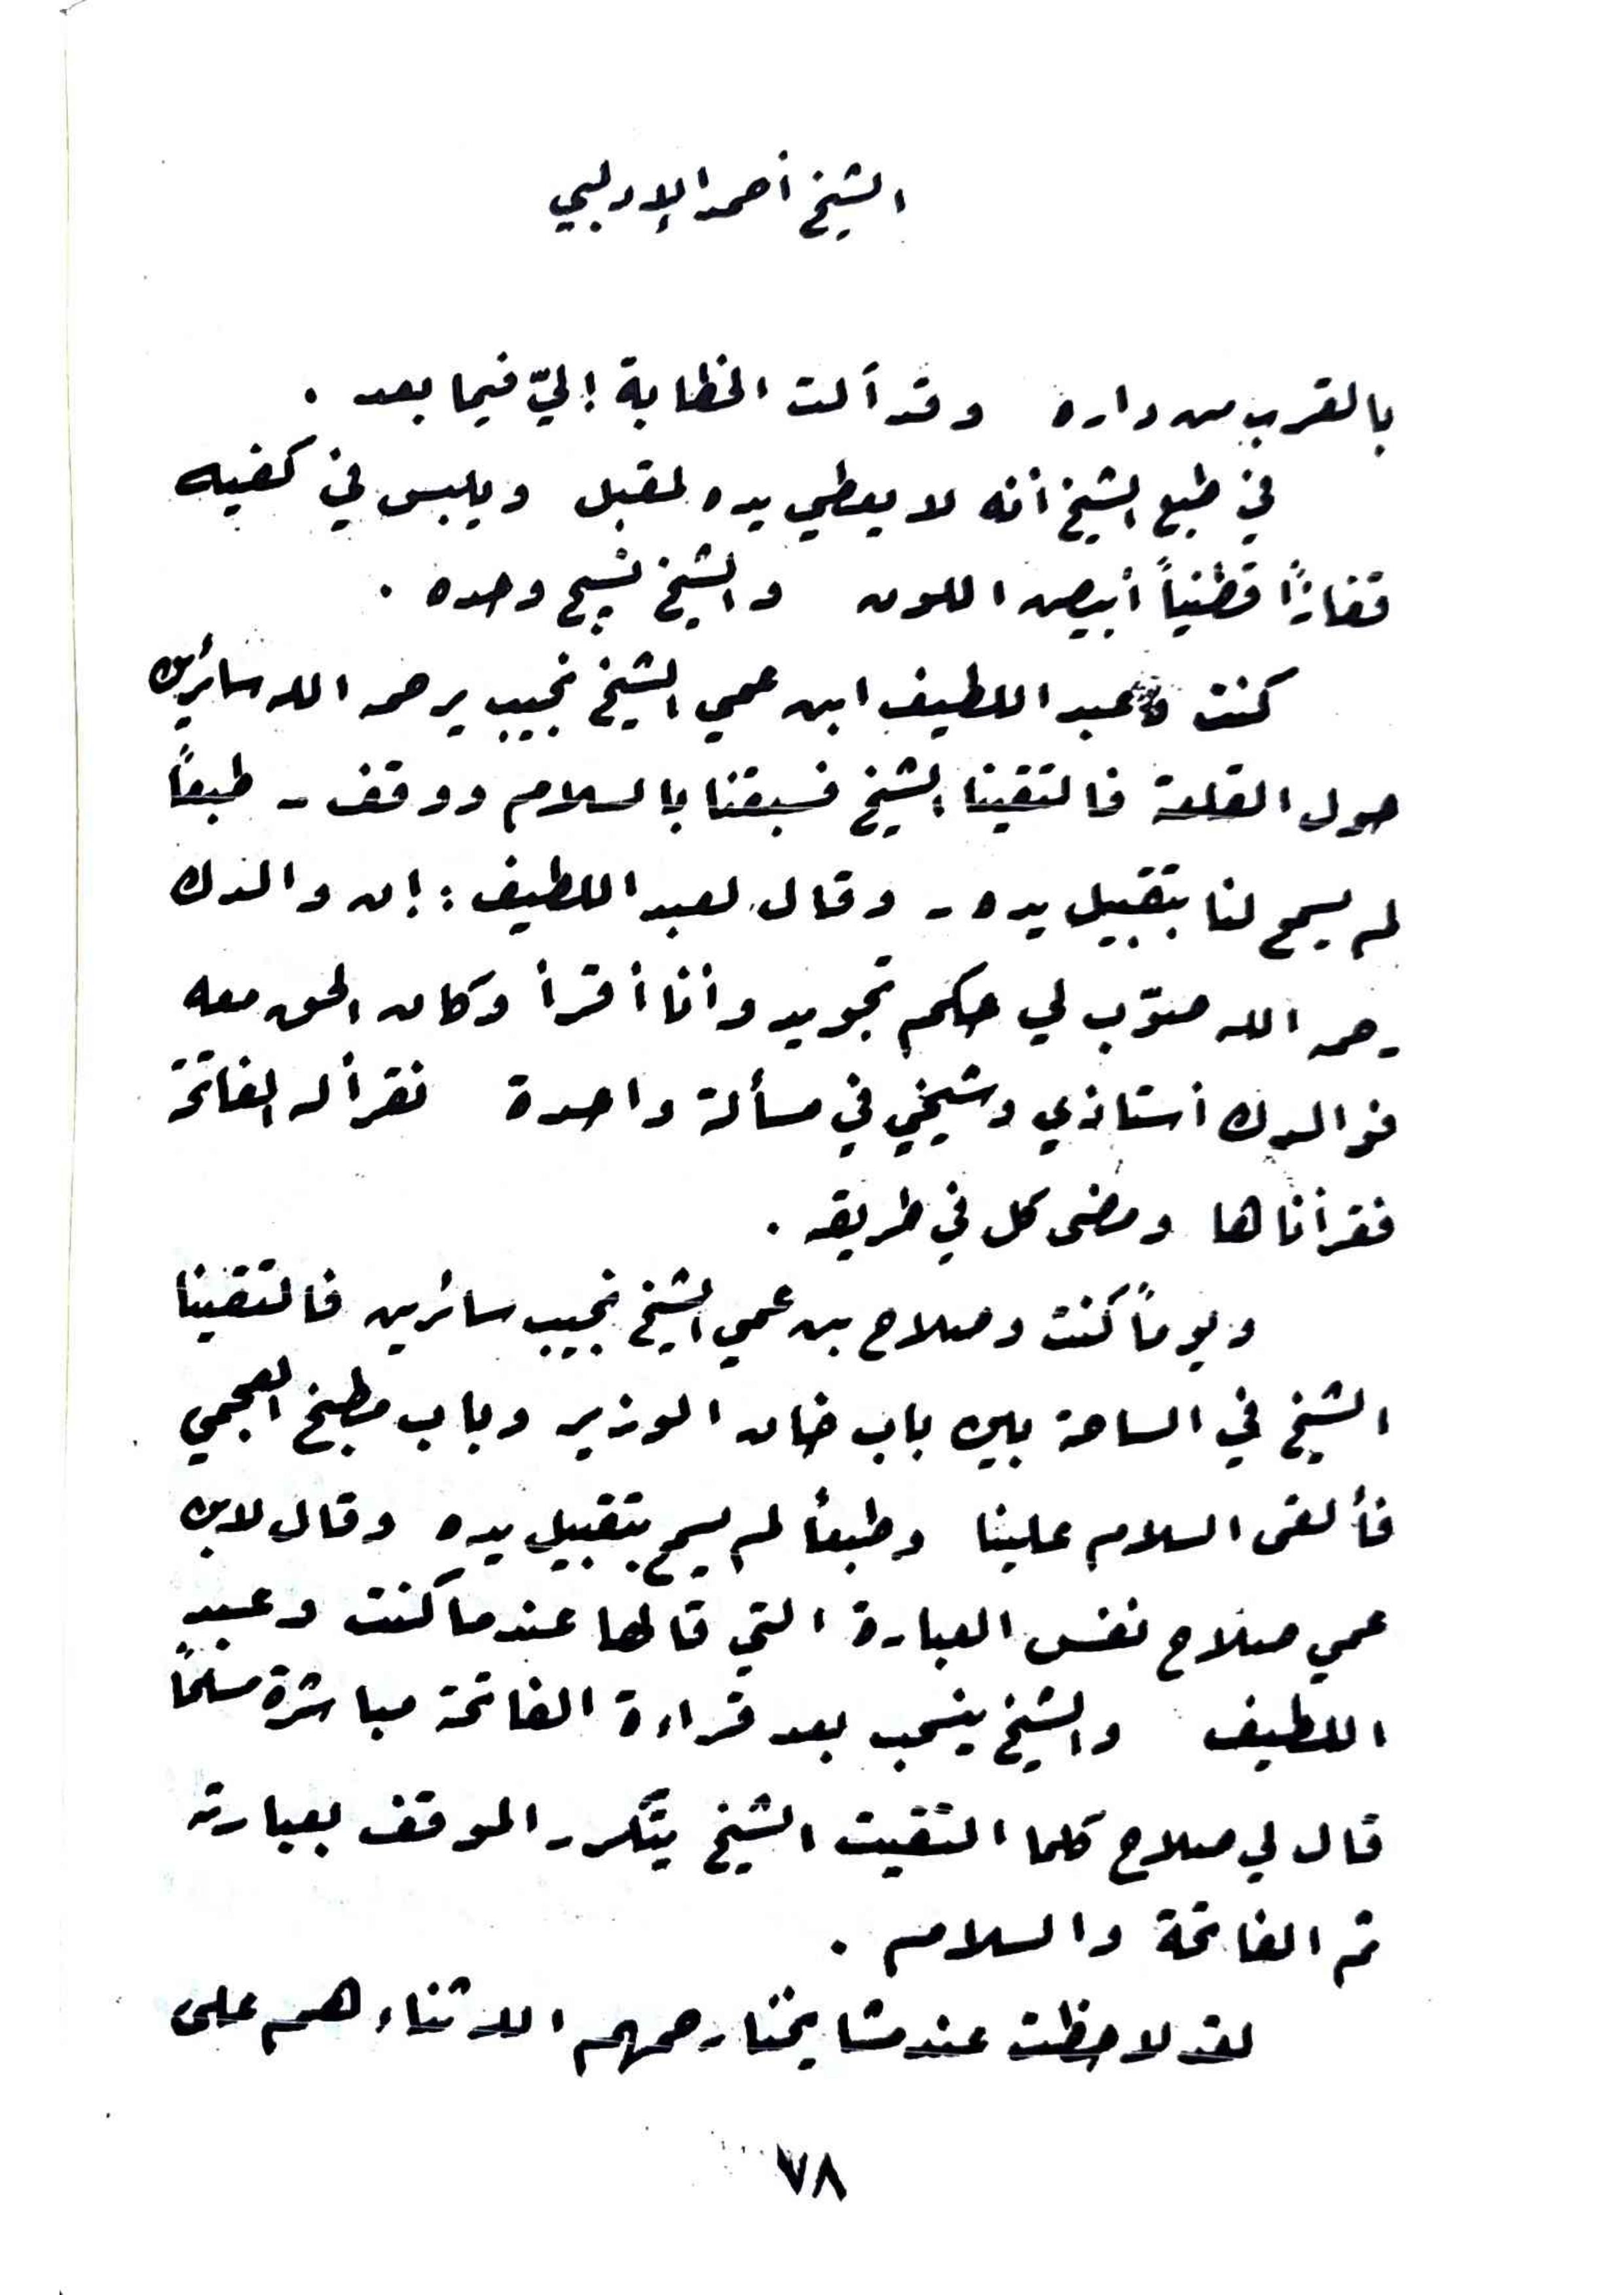 الشيخ أحمد الإدلبي
بالقرب من داره وقد آلت الخطابة إليّ فيما بعد .
في طبع الشيخ أنه لا يعطي يده لمقبل ويلبس في كفيه
قفازاً قطنياً أبيض اللون والشيخ نسيج وحده .
كنت وعبد اللطيف ابن عمي الشيخ نجيب يرحمه الله سائرين
حول القلعة فالتقينا الشيخ فسبقنا بالسلام ووقف - طبعاً
لم يسمح لنا بتقبيل يده - وقال لعبد اللطيف : إن والدك
رحمه الله صوّب لي حكم تجويد وأنا أقرأ وكان الحق معه
فوالدك أستاذي وشيخي في مسألة واحدة نقرأ له الفاتحة
فقرأناها ومضى كل في طريقه .
ويوماً كنت وصلاح بن عمي الشيخ نجيب سائرين فالتقينا
الشيخ في الساحة بين باب خان الوزير وباب مطبخ العجمي
فألقى السلام علينا وطبعاً لم يسمح بتقبيل يده وقال لابن
عمي صلاح نفس العبارة التي قالها عندما كنت وعبد
اللطيف والشيخ ينسحب بعد قراءة الفاتحة مباشرة مسلماً
قال لي صلاح كلما التقيت الشيخ يتكرر الموقف بعبارته
ثم الفاتحة والسلام .
لقد لاحظت عند مشايخنا رحمهم الله ثناءهم على
٧٨